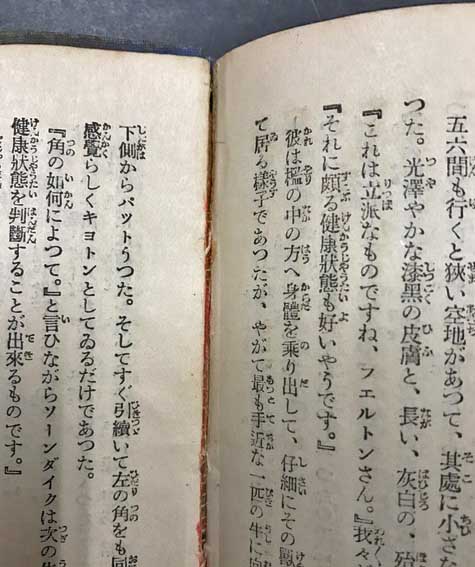 五六間も行くと狹い空地があつて、其處に小さな
つた。光澤やかな漆黑の皮膚と、長い、灰白の、殆
『これは立派なものですね、フェルトンさん。』我々
『それに頗る健康狀態も好いやうです。』
彼は檻の中の方へ身體を乗り出して、仔細にその獸
て居る樣子であつたが、やがて最も手近な一匹の牛に向
下側からパットうつた。そしてすぐ引續いて左の角をも同
感覺らしくキョトンとしてゐるだけであつた。
『角の如何によつて。』と言ひながらソーンダイクは次の
健康狀態を判斷することが出來るものです。』